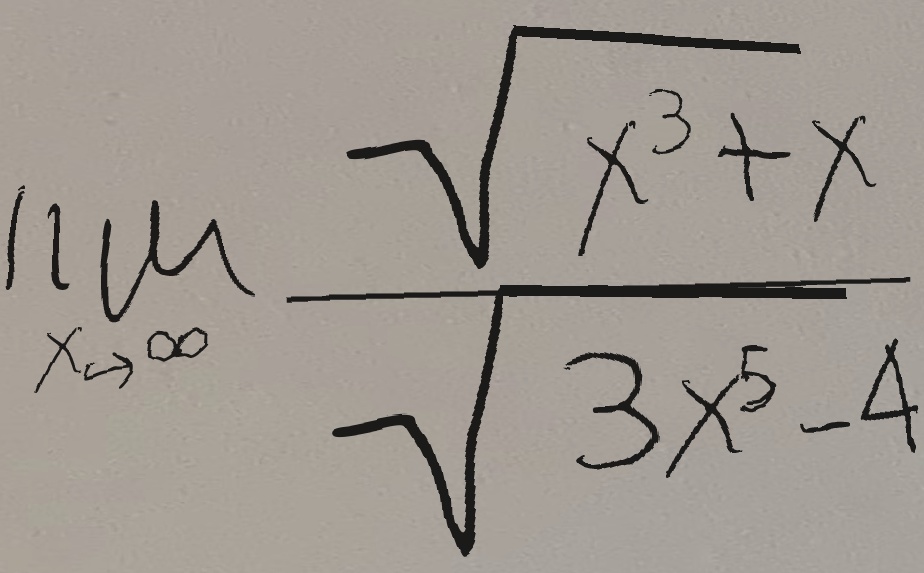 lim x→∞ √(x³ + x) / √(3x⁵ - 4)